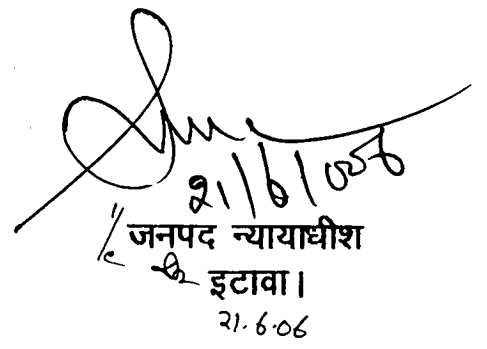 21/6/006
I/c जनपद न्यायाधीश
इटावा।
21.6.06